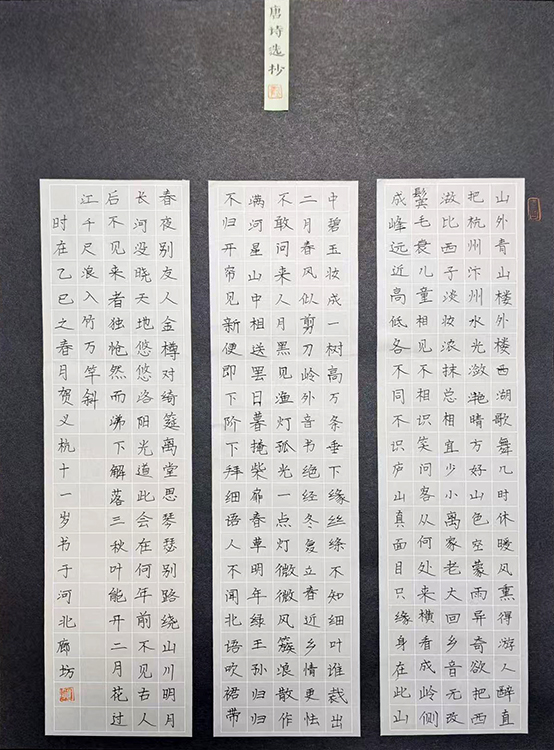 唐诗选抄
山外青山楼外楼西湖歌舞几时休暖风熏得游人醉直
把杭州汴州水光潋滟晴方好山色空蒙雨异奇欲把西
湖比西子淡妆浓抹总相宜少小离家老大回乡音无改
鬓毛衰儿童相见不相识笑问客从何处来横看成岭侧
成峰远近高低各不同不识庐山真面目只缘身在此山
中碧玉妆成一树高万条垂下绿丝绦不知细叶谁裁出
二月春风似剪刀岭外音书绝经冬复立春近乡情更怯
不敢问来人月黑见渔灯孤光一点灯微微风簇浪散作
满河星山中相送罢日暮掩柴扉春草明年绿王孙归归
不归开帘见新便即下阶下拜细语人不闻北语吹裙带
春夜别友人金樽对绮筵离堂思琴瑟别路绕山川明月
长河没晓天地悠悠洛阳光道此会在何年前不见古人
后不见来者独怆然而涕下解落三秋叶能开二月花过
江千尺浪入竹万竿斜
时在乙巳之春月贺义杭十一岁书于河北廊坊